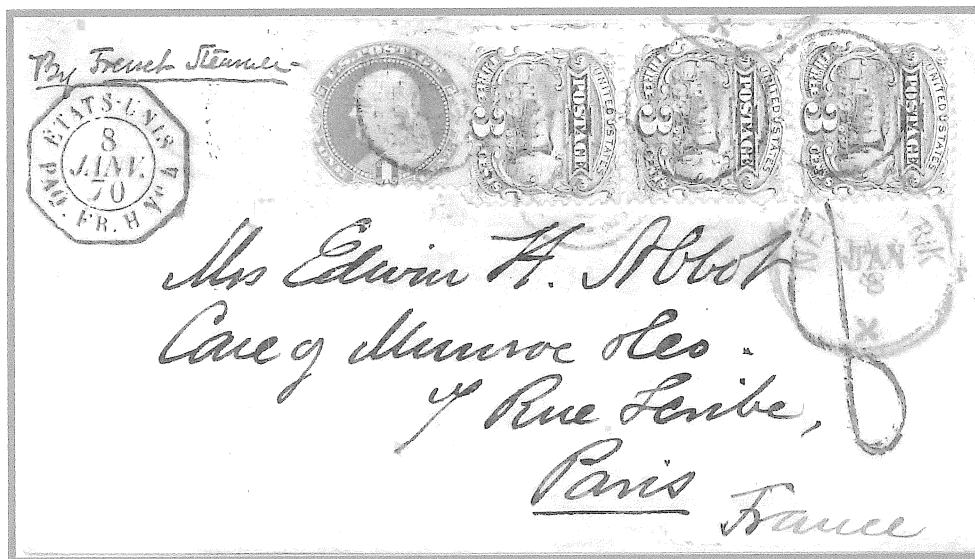 By French Steamer
ETATS-UNIS
8
JANV.
70
PAQ. FR. H No 4
U.S. POSTAGE
1
UNITED STATES
POSTAGE
3
UNITED STATES
POSTAGE
3
UNITED STATES
POSTAGE
3
NEW YORK
JAN
8
Mrs Edwin H. Abbot
Care of Munroe & Co.
7 Rue Scribe,
Paris
France